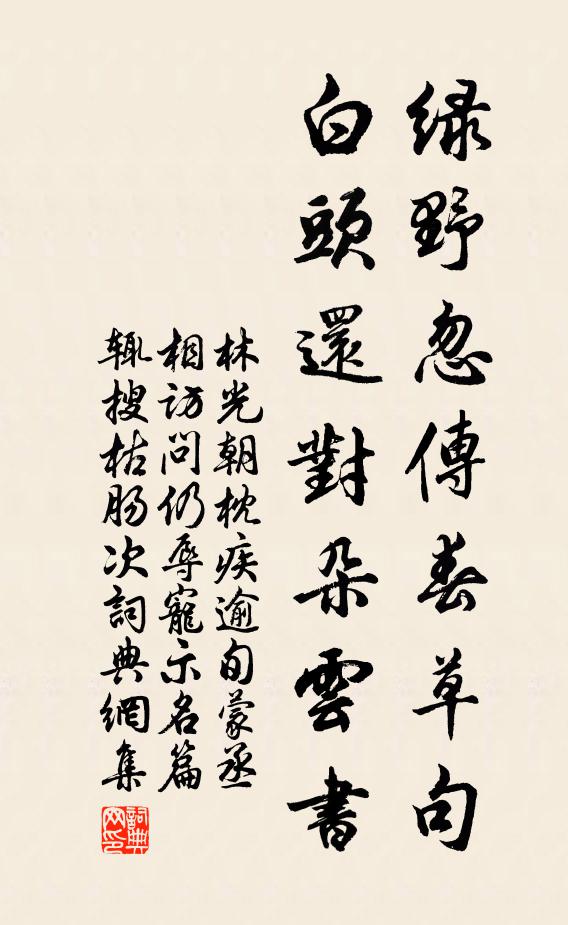 绿野忽傳春草句
白頭還對朶雲書
林光朝枕疾逾旬蒙丞
相訪問仍辱寵示名篇
輒搜枯肠次詞典網集
詞典網印